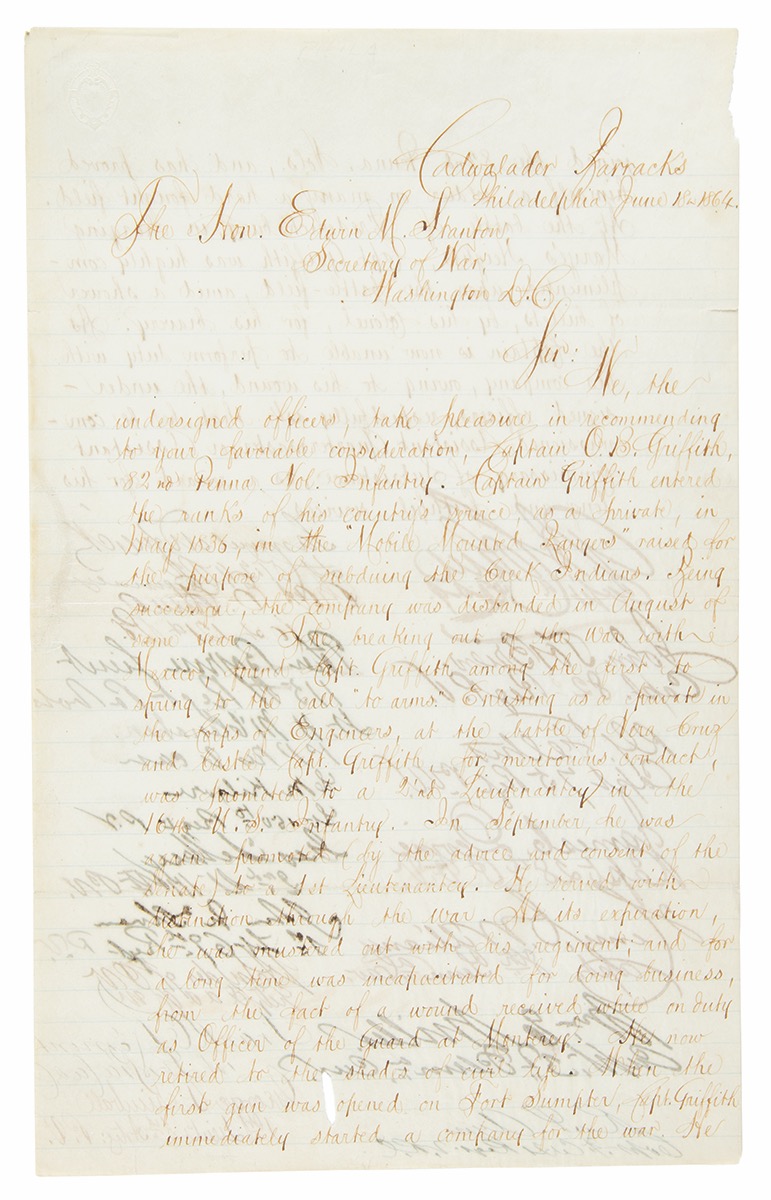 Cadwalader Barracks
Philadelphia June 18th 1864.
The Hon. Edwin M. Stanton,
Secretary of War,
Washington D.C.
Sir:
We, the
undersigned officers, take pleasure in recommending
to your favorable consideration, Captain O. B. Griffith,
82nd Penna. Vol. Infantry. Captain Griffith entered
the ranks of his country's service, as a private, in
May 1836, in the "Mobile Mounted Rangers" raised for
the purpose of subduing the Creek Indians. Being
successful, the company was disbanded in August of
same year. The breaking out of the war with
Mexico, found Capt. Griffith among the first to
spring to the call "to arms." Enlisting as a private in
the Corps of Engineers, at the battle of Vera Cruz
and Castle Capt. Griffith, for meritorious conduct,
was promoted to a 2nd Lieutenantcy in the
16th U.S. Infantry. In September, he was
again promoted (by the advice and consent of the
Senate) to a 1st Lieutenantcy. He served with
distinction through the war. At its expiration,
he was mustered out with his regiment; and for
a long time was incapacitated for doing business,
from the fact of a wound received while on duty
as Officer of the Guard at Monterey. He now
retired to the shades of civil life. When the
first gun was opened on Fort Sumpter, Capt. Griffith
immediately started a company for the war. He